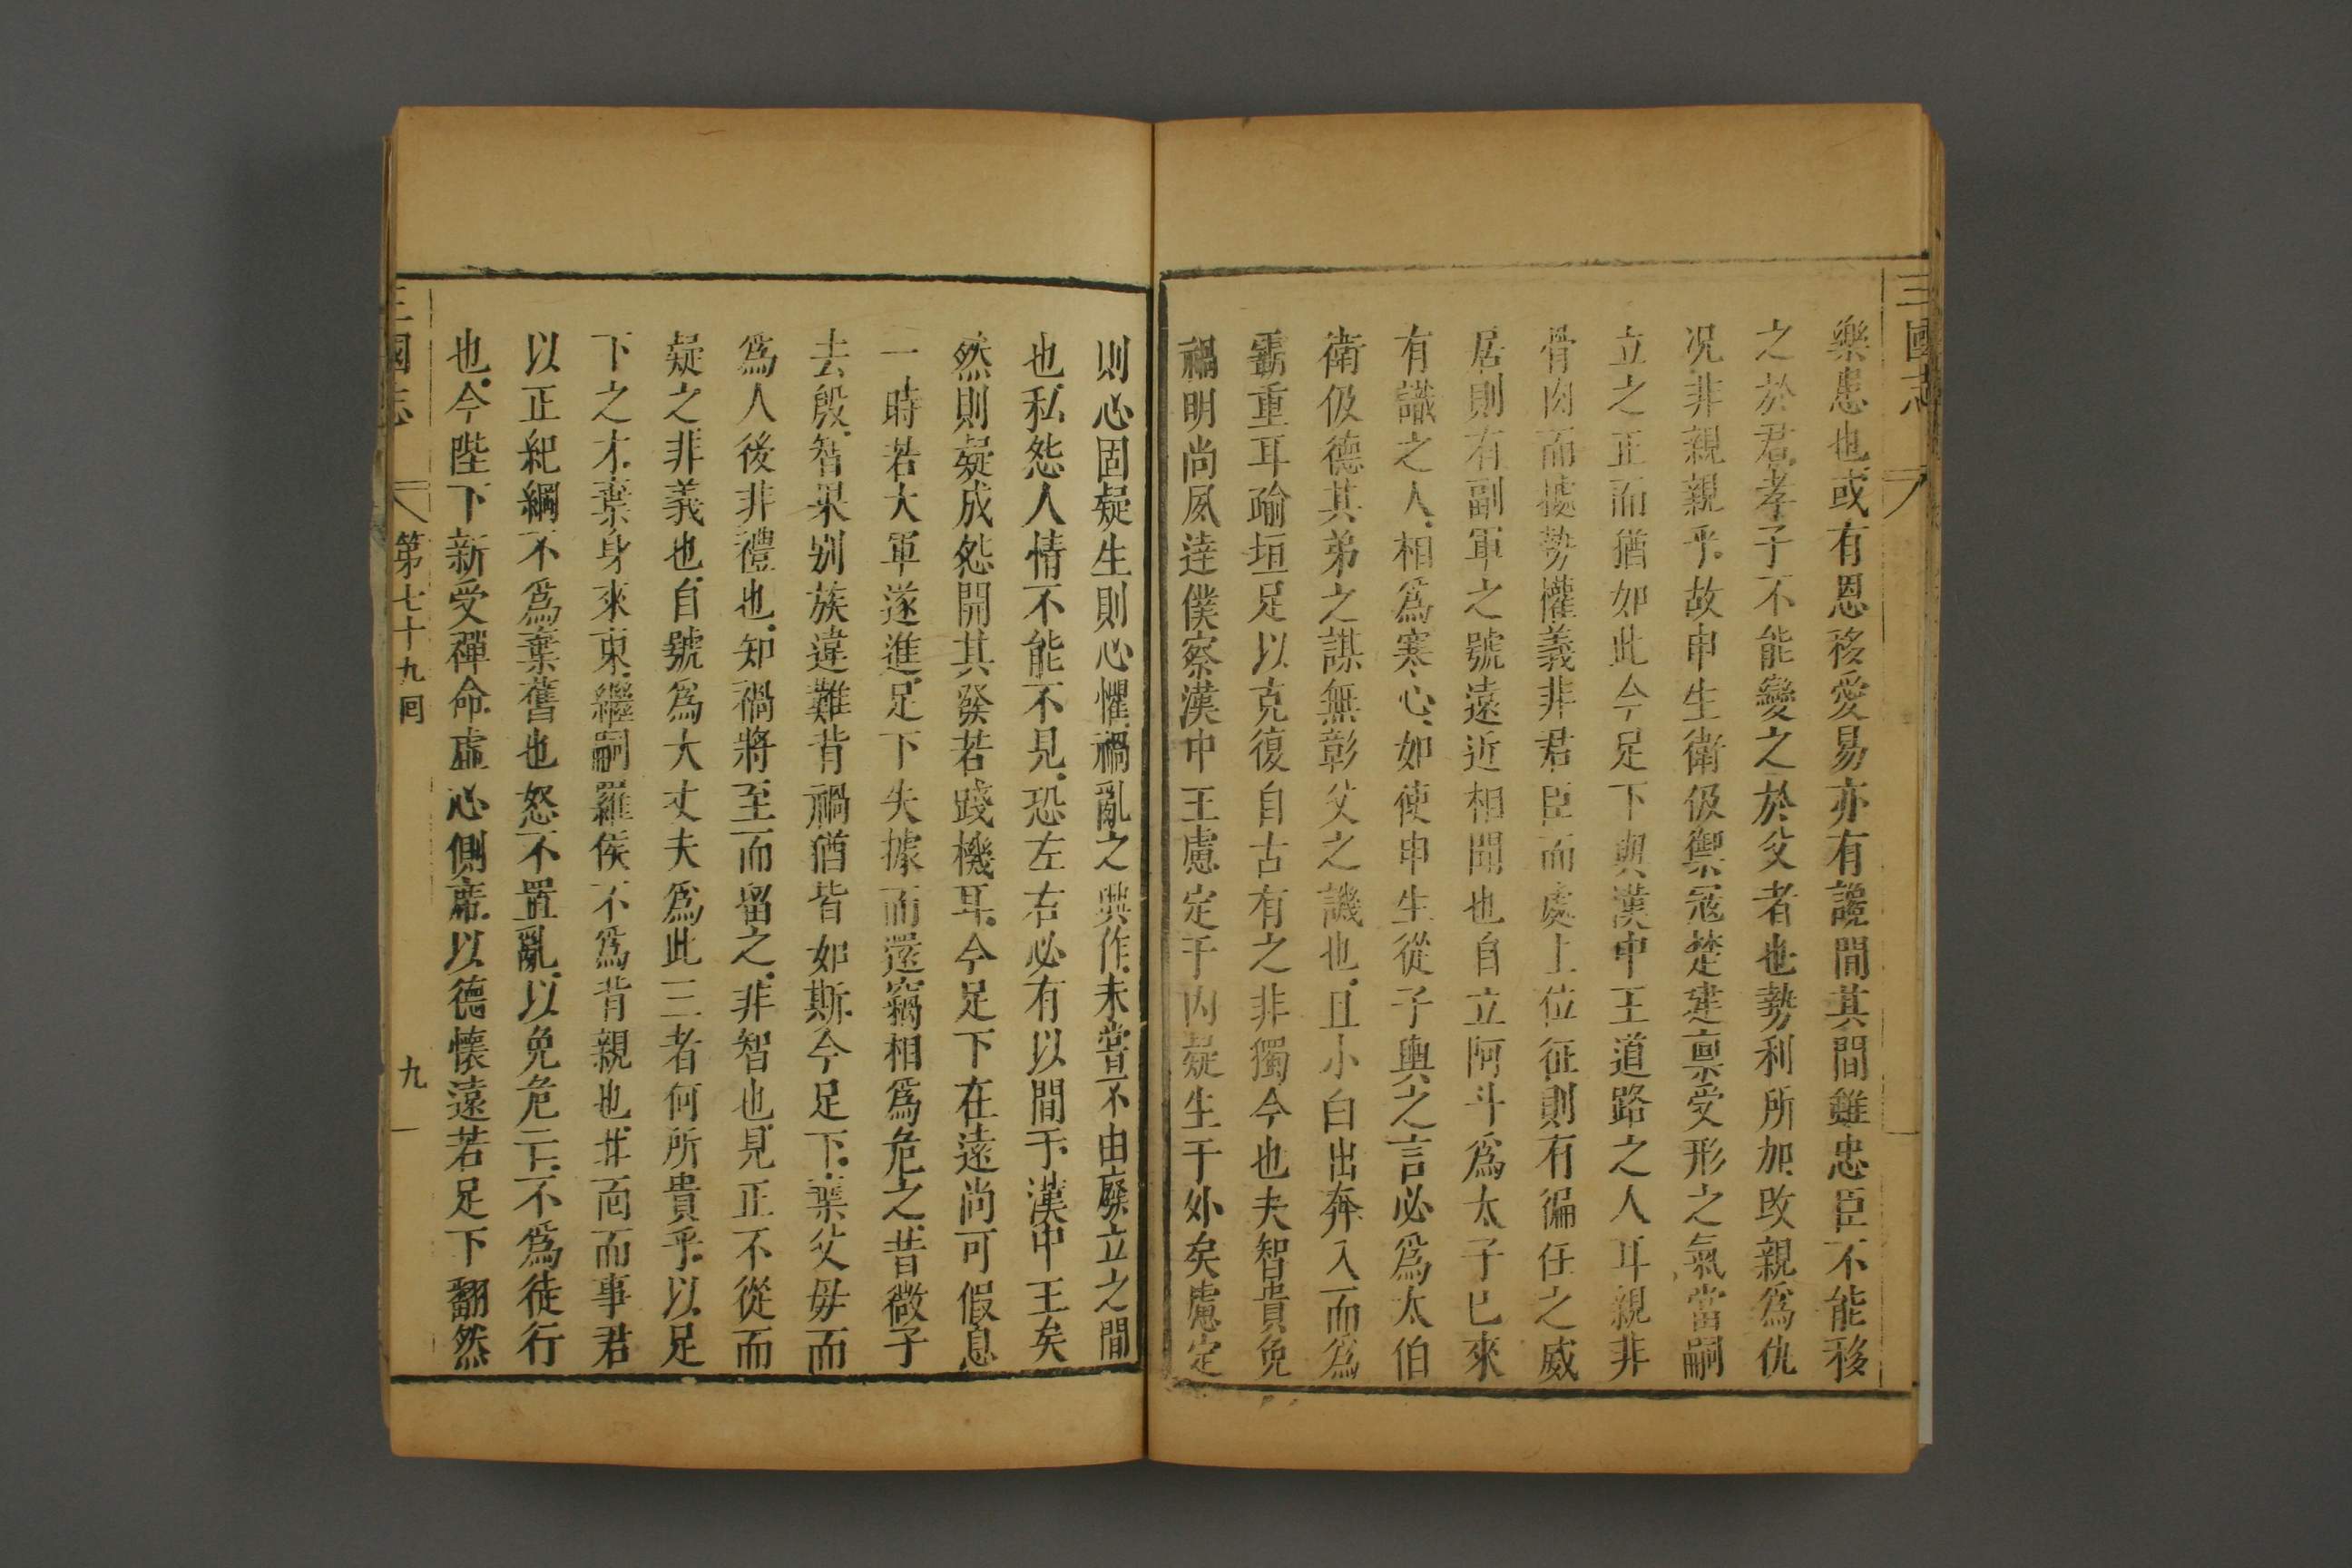 三國志
樂患也或有恩移愛易亦有讒間其間雖忠臣不能移
之於君孝子不能變之於父者也勢利所加攺親爲仇
况非親親乎故申生衛伋禦冦楚建禀受形之氣當嗣
立之正而猶如此今足下與漢中王道路之人耳親非
骨肉而據勢權義非君臣而處上位征則有徧任之威
居則有副軍之號遠近相聞也自立阿斗爲太子巳來
有識之人相爲寒心如使申生從子輿之言必爲太伯
衛伋德其弟之謀無彰父之譏也且小白出奔入而爲
霸重耳踰垣足以克復自古有之非獨今也夫智貴免
禍明尚夙達僕察漢中王慮定于内疑生于外矣慮定
則心固疑生則心懼禍亂之興作未嘗不由廢立之間
也私怨人情不能不見恐左右必有以間于漢中王矣
然則疑成怨開其發若踐機耳今足下在遠尚可假息
一時若大軍遂進足下失據而還竊相爲危之昔微子
去殷智果别族違難背禍猶皆如斯今足下棄父毋而
爲人後非禮也知禍將至而留之非智也見正不從而
疑之非義也自號爲大丈夫爲此三者何所貴乎以足
下之才棄身來東繼嗣羅侯不爲背親也北面而事君
以正紀綱不爲棄舊也怒不置亂以免危亡不爲徒行
也今陛下新受禪命虚心側席以德懷遠若足下翻然
三國志
第七十九囘
九